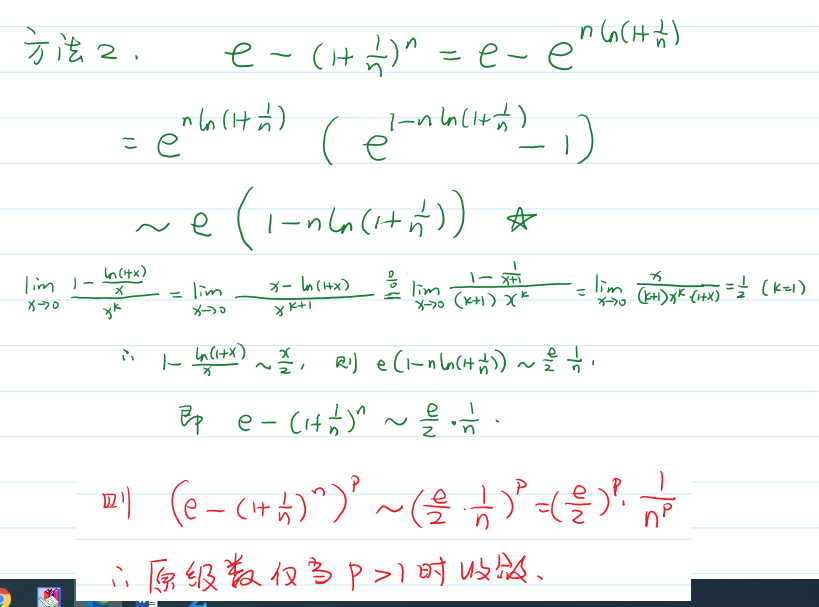 方法2. e-(1+1/n)^n = e-e^{n ln(1+1/n)}
= e^{n ln(1+1/n)} (e^{1-n ln(1+1/n)} -1)
~ e(1-n ln(1+1/n)) ☆
lim_{x→0} (1-ln(1+x)/x)/x^k = lim_{x→0} (x-ln(1+x))/x^{k+1} \overset{0/0}{=} lim_{x→0} (1-1/(x+1))/((k+1)x^k) = lim_{x→0} x/((k+1)x^k·(1+x)) = 1/2 (k=1)
∴ 1-ln(1+x)/x ~ x/2, 则 e(1-n ln(1+1/n)) ~ e/2 1/n.
即 e-(1+1/n)^n ~ e/2·1/n.
则 (e-(1+1/n)^n)^p ~ (e/2·1/n)^p = (e/2)^p·1/n^p
∴ 原级数仅当 p>1 时收敛.